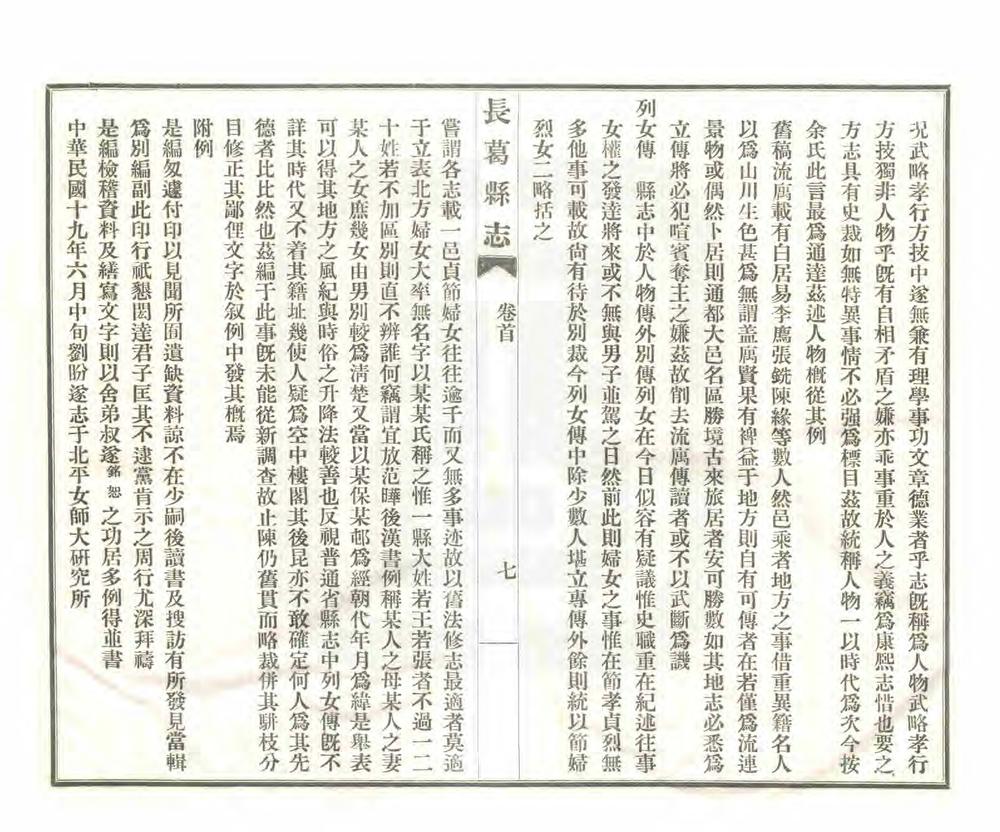 況武略孝行方技中遂無兼有理學事功文章德業者乎志旣稱爲人物武略孝行
方技獨非人物乎旣有自相矛盾之嫌亦乖事重於人之義竊爲康熙志惜也要之
方志具有史裁如無特異事情不必强爲標目茲故統稱人物一以時代爲次今按
余氏此言最爲通達茲述人物槪從其例
舊稿流寓載有白居易李廌張銑陳緣等數人然邑乘者地方之事借重異籍名人
以爲山川生色甚爲無謂盖寓賢果有裨益于地方則自有可傳者在若僅爲流連
景物或偶然卜居則通都大邑名區勝境古來旅居者安可勝數如其地志必悉爲
立傳將必犯喧賓奪主之嫌茲故削去流寓傳讀者或不以武斷爲譏
列女傳　縣志中於人物傳外別傳列女在今日似容有疑議惟史職重在紀述往事
女權之發達將來或不無與男子並駕之日然前此則婦女之事惟在節孝貞烈無
多他事可載故尙有待於別裁今列女傳中除少數人堪立專傳外餘則統以節婦
烈女二略括之
長葛縣志
卷首
七
嘗謂各志載一邑貞節婦女往往逾千而又無多事迹故以舊法修志最適者莫適
于立表北方婦女大率無名字以某某氏稱之惟一縣大姓若王若張者不過一二
十姓若不加區別則直不辨誰何竊謂宜放范曄後漢書例稱某人之母某人之妻
某人之女庶幾女由男別較爲淸楚又當以某保某邨爲經朝代年月爲緯是舉表
可以得其地方之風紀與時俗之升降法較善也反視普通省縣志中列女傳旣不
詳其時代又不着其籍址幾使人疑爲空中樓閣其後昆亦不敢確定何人爲其先
德者比比然也茲編于此事旣未能從新調查故止陳仍舊貫而略裁倂其駢枝分
目修正其鄙俚文字於叙例中發其槪焉
附例
是編匆遽付印以見聞所囿遺缺資料諒不在少嗣後讀書及搜訪有所發見當輯
爲別編副此印行祇懇閎達君子匡其不逮黨肯示之周行尤深拜禱
是編檢稽資料及繕寫文字則以舍弟叔遂銘恕之功居多例得並書
中華民國十九年六月中旬劉盼遂志于北平女師大硏究所